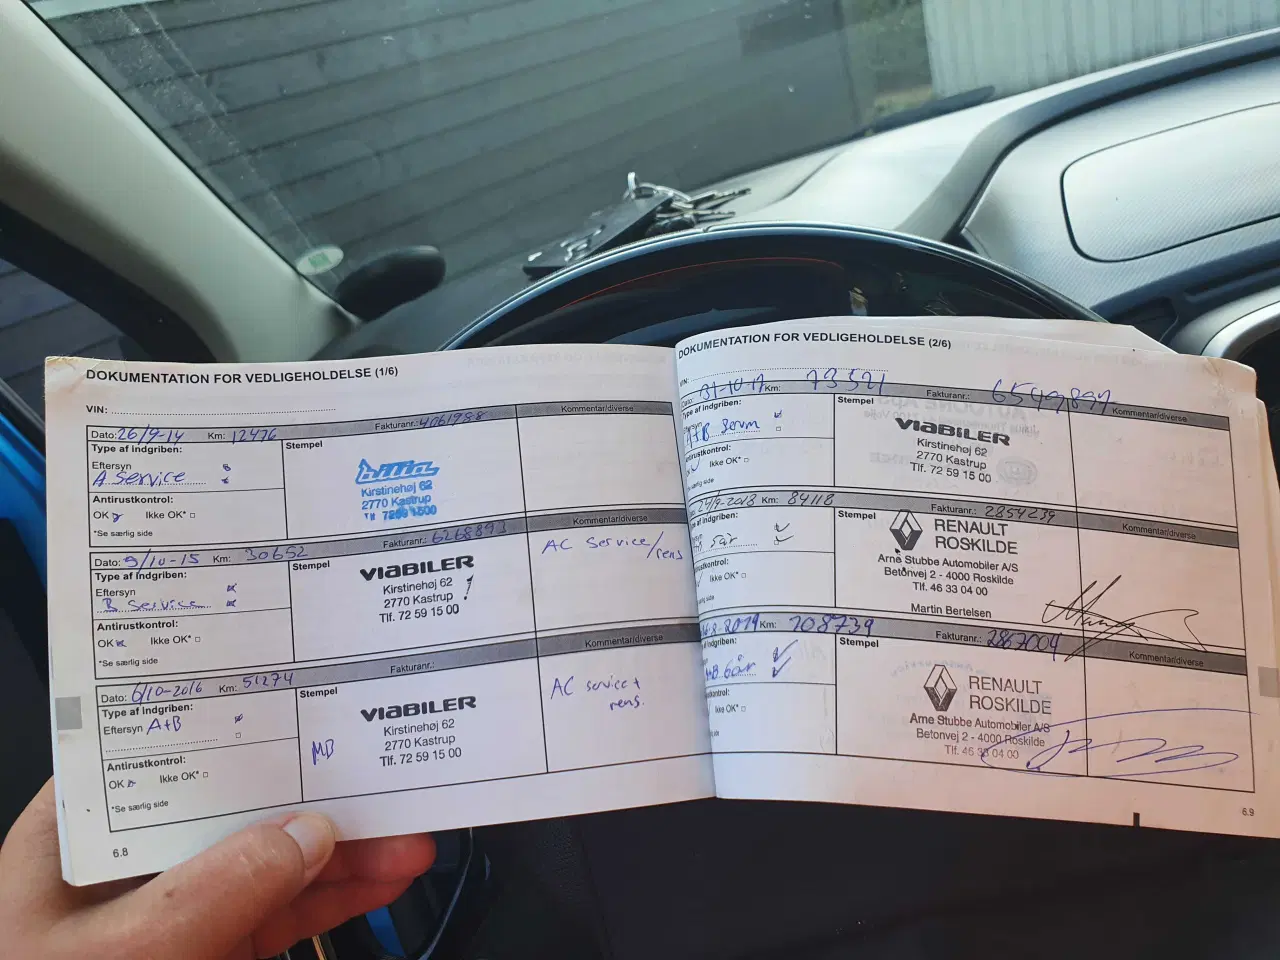 DOKUMENTATION FOR VEDLIGEHOLDELSE (1/6)
VIN:
Dato: 26/9-14 Km: 12476 Fakturanr.: 4061988 Kommentar/diverse
Type af indgriben:
Stempel
Eftersyn
A Service
Kirstinehøj 62
2770 Kastrup
Tlf 7259 1500
Antirustkontrol:
OK Ikke OK*
*Se særlig side
Dato: 9/10-15 Km: 30652 Fakturanr.: 6268893 Kommentar/diverse
Type af indgriben:
Stempel
Eftersyn
B Service
VIABILER
Kirstinehøj 62
2770 Kastrup
Tlf. 72 59 15 00
AC Service/
rens
Antirustkontrol:
OK Ikke OK*
*Se særlig side
Dato: 6/10-2016 Km: 51274 Fakturanr.: Kommentar/diverse
Type af indgriben:
Stempel
Eftersyn A+B
MB
VIABILER
Kirstinehøj 62
2770 Kastrup
Tlf. 72 59 15 00
AC service+
rens.
Antirustkontrol:
OK Ikke OK*
*Se særlig side
6.8
DOKUMENTATION FOR VEDLIGEHOLDELSE (2/6)
VIN:
Dato: 31-10-17 Km: 73521 Fakturanr.: 6549897 Kommentar/diverse
Type af indgriben:
Stempel
Eftersyn
A+B
VIABILER
Kirstinehøj 62
2770 Kastrup
Tlf. 72 59 15 00
Antirustkontrol:
Ikke OK*
*Se særlig side
24/9-2018 Km: 84118 Fakturanr.: 2854239 Kommentar/diverse
Type af indgriben:
Stempel
5år
RENAULT
ROSKILDE
Arne Stubbe Automobiler A/S
Betonvej 2 - 4000 Roskilde
Tlf. 46 33 04 00
Martin Bertelsen
Ikke OK*
8-2019 Km: 108739 Fakturanr.: 2867004 Kommentar/diverse
Stempel
A+B 6år
RENAULT
ROSKILDE
Arne Stubbe Automobiler A/S
Betonvej 2 - 4000 Roskilde
Tlf. 46 33 04 00
Ikke OK*
6.9